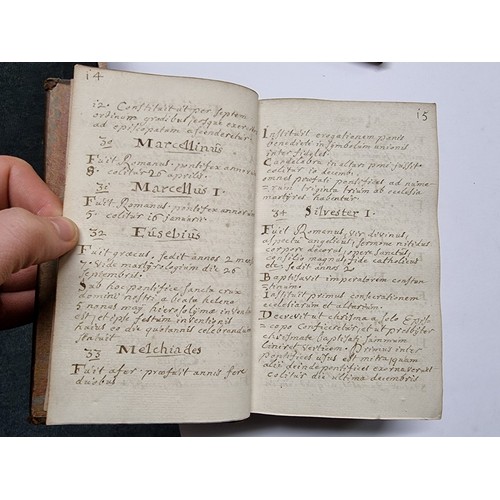 14
12. Constituit ut per septem
ordinum gradibus usque
ad episcopatum ascenderetur
30 Marcellinus
Fuit Romanus pontifex annorum
8. colitur 26 aprilis
31 Marcellus I.
Fuit Romanus pontifex annorum
5. colitur 16 januarii
32 Eusebius
Fuit graecus, sedit annos 2 menses
die 26
Septembris
Sub hoc pontifice sancta crux
domini nostri a beata helena
5 nonas maij hierosolymis inventa
est et ipse festum inventionis
huius eo die quotannis celebrandum
statuit
33 Melchiades
Fuit afer. praefuit annis fere
duobus
15
Instituit erogationem panis
benedicti in symbolum unionis
inter fideles
Candelabra in altari
colitur 10 decembris
omnes profati pontifices ad nume=
=rum triginta trium ab ecclesia
martyres habentur
34 Silvester I.
Fuit Romanus, vir divinus,
aspectu angelicus, sermone nitidus
corpore decorus, opere sanctus
consilio magnus, fide catholicus
sedit annos 2
Baptisavit imperatorem constan=
=tinum
Instituit primus consecrationem
ecclesiarum et altarium.
Decrevit ut chrisma a solo Epis=
=copo conficeretur, et ut presbyter
chrismate baptisati summum
liniret verticem. Primus inter
pontifices usus est mitra, quam
alii deinde pontifices exornaverunt
colitur die ultima decembris